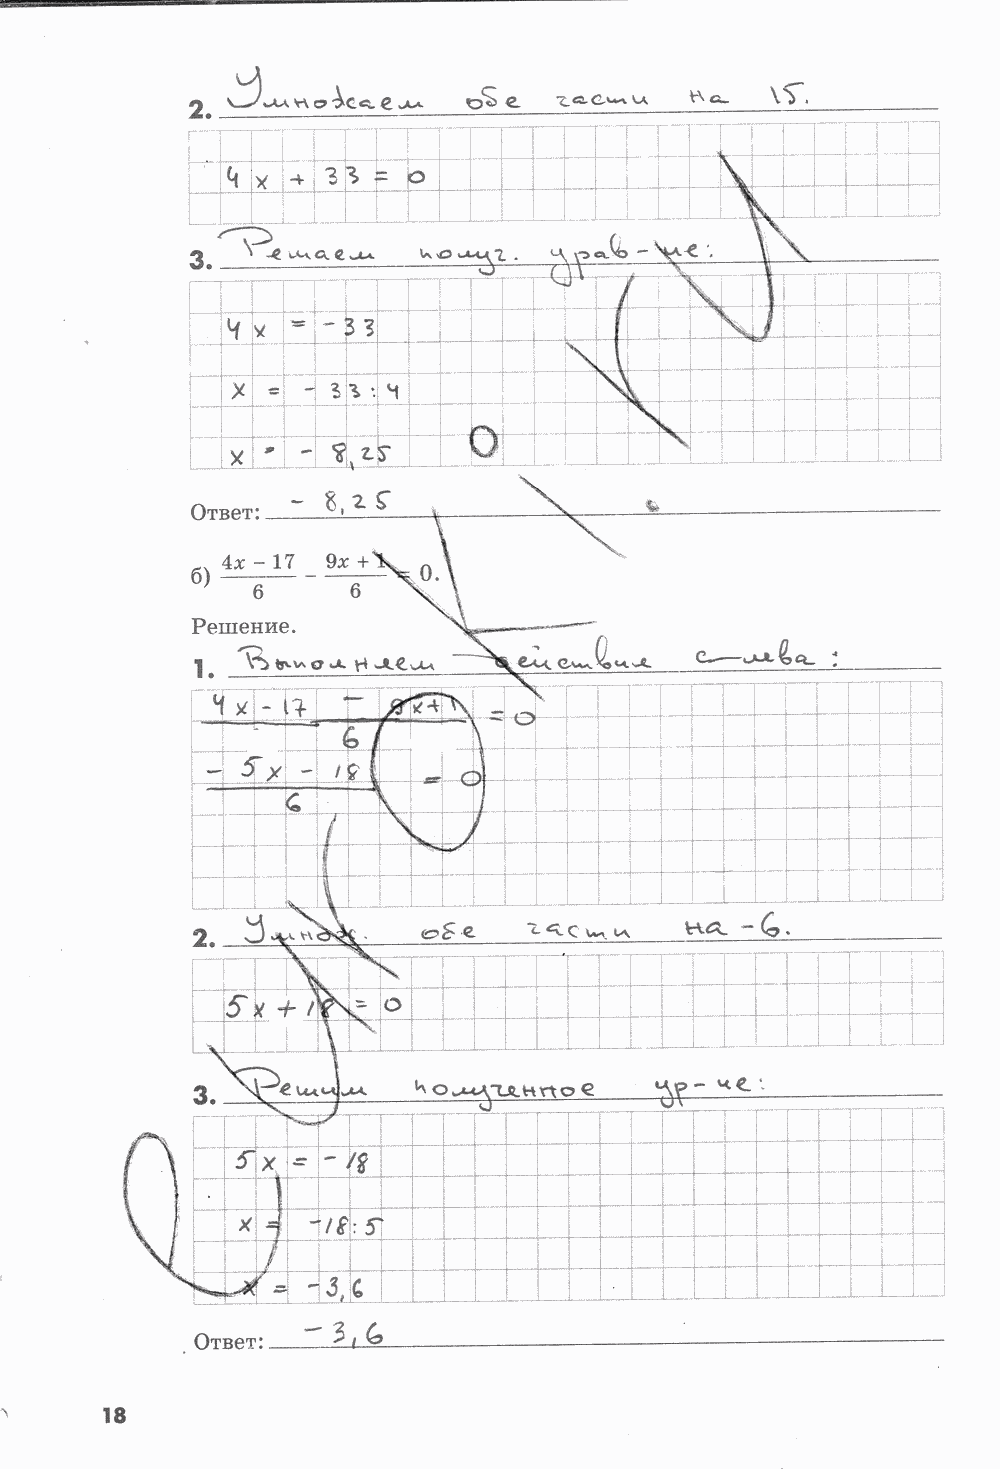 2. Умножаем обе части на 15.
4x + 33 = 0
3. Решаем получ. урав-ие:
4x = -33
x = - 33 : 4
x = - 8,25
Ответ: - 8,25
б) (4x - 17)/6 - (9x + 1)/6 = 0.
Решение.
1. Выполняем действия слева:
(4x - 17 - 9x + 1)/6 = 0
(- 5x - 18)/6 = 0
2. Умнож. обе части на -6.
5x + 18 = 0
3. Решим полученное ур-ие:
5x = -18
x = -18:5
x = -3,6
Ответ: -3,6
18